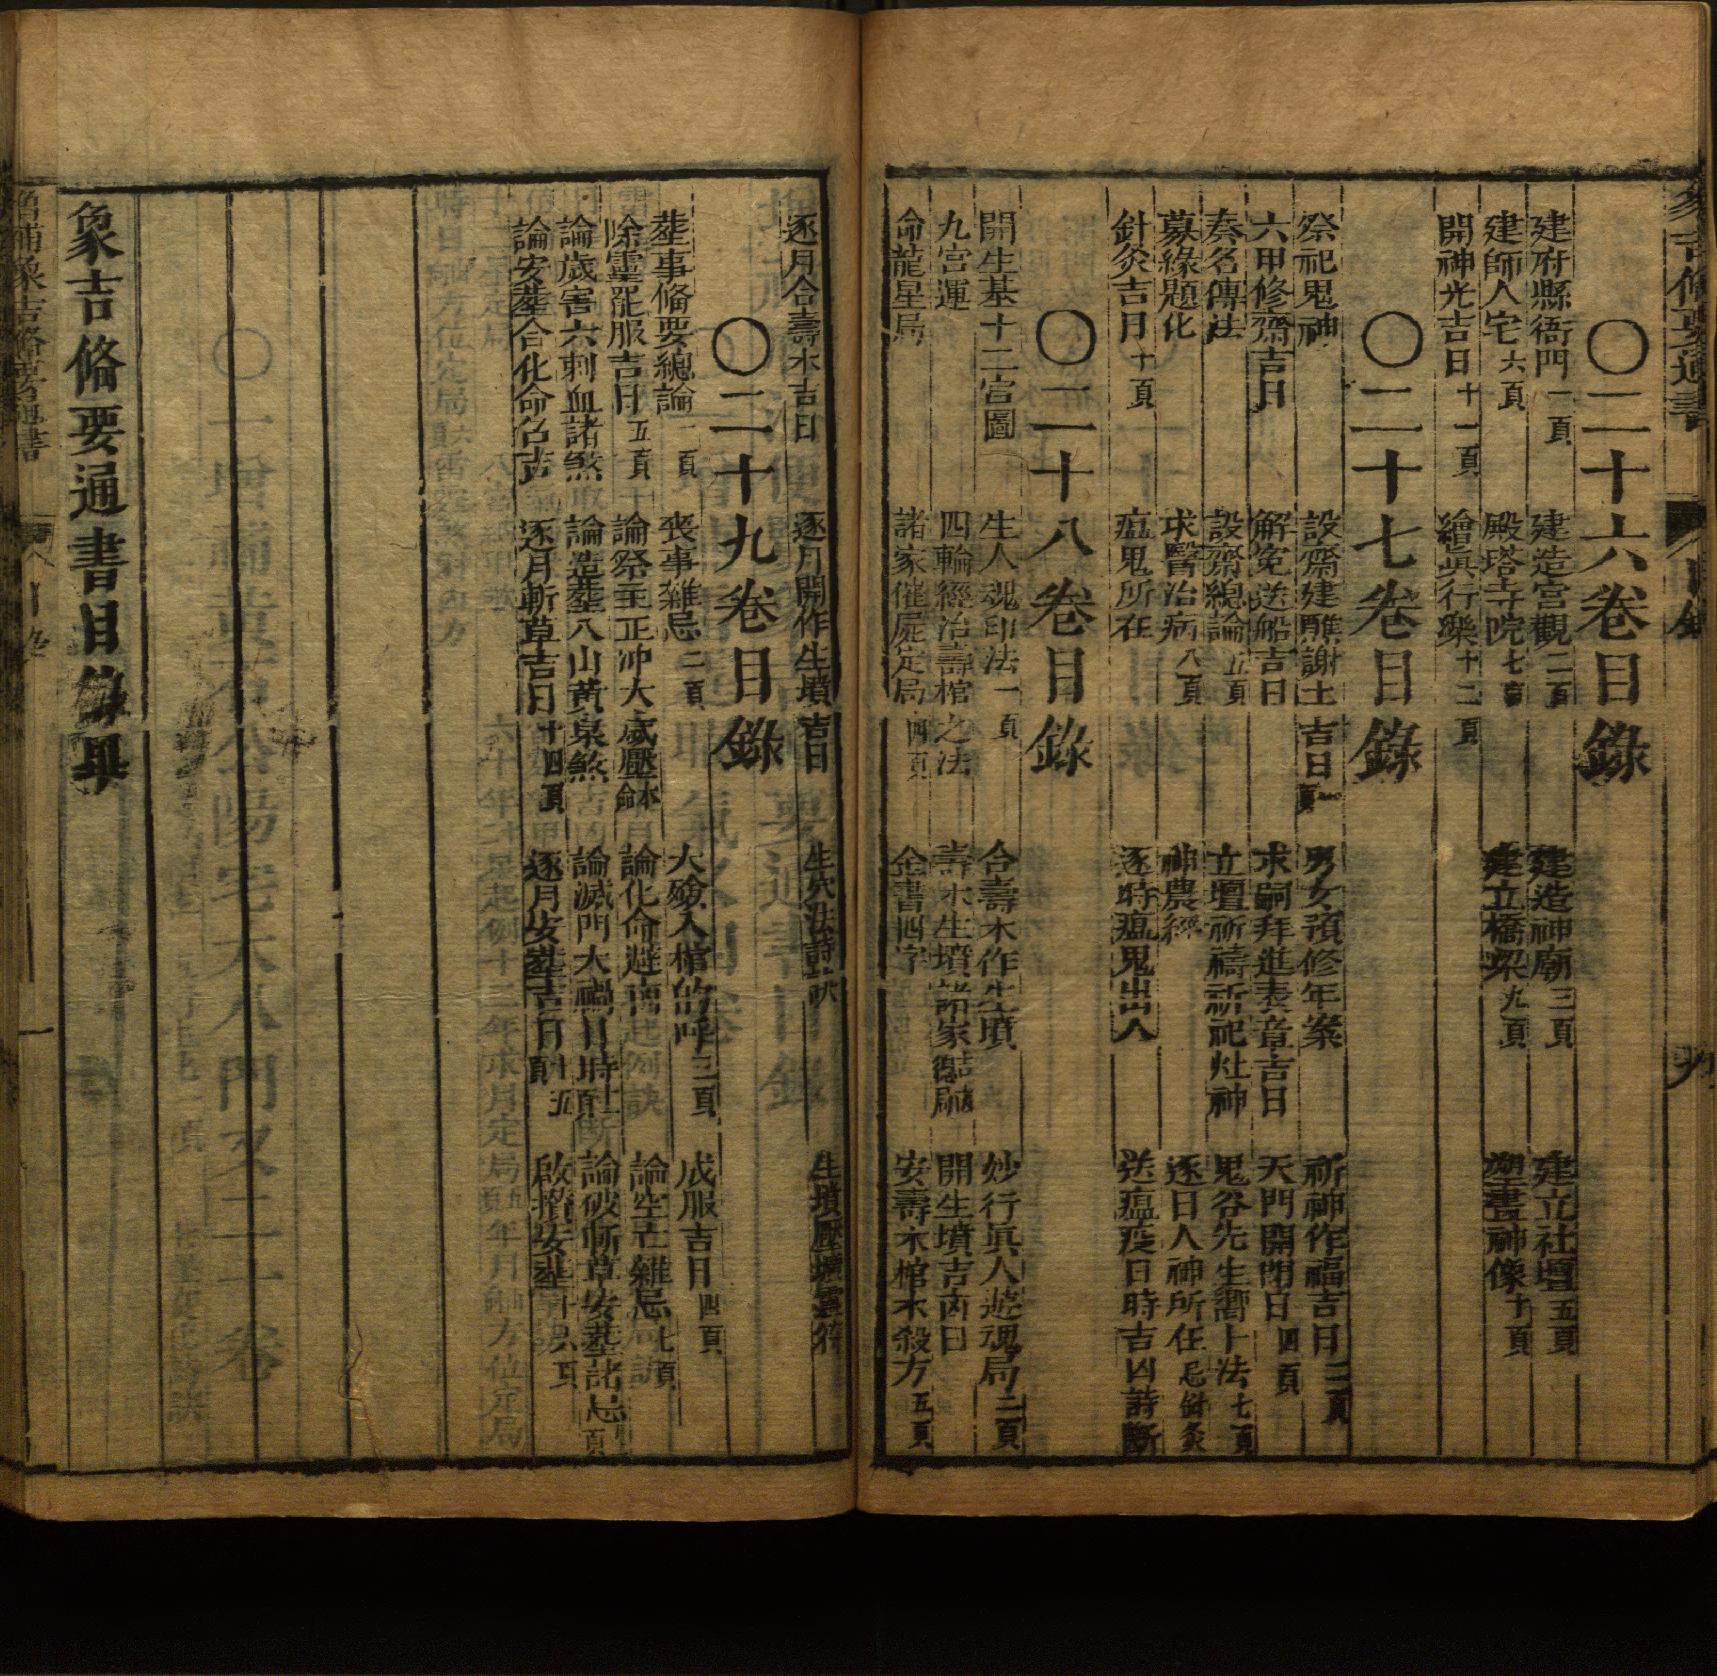 〇二十六卷目錄
建府縣衙門一頁 建造宮觀二頁 建造神廟三頁 建立社壇五頁
建師人宅六頁 殿塔寺院七頁 建立橋梁九頁 塑畫神像十頁
開神光吉日十一頁 繪眞行樂十二頁
〇二十七卷目錄
祭祀鬼神 設齋建醮謝土吉日一頁 男女預修年案 祈神作福吉日二頁
六甲修齋吉日 解冤送船吉日 求嗣拜進表章吉日 天門開閉日四頁
奏名傳法 設齋總論五頁 立壇祈禱祈祀灶神 鬼谷先生響卜法七頁
募緣題化 求醫治病八頁 神農經 逐日人神所在忌針灸
針灸吉日十頁 瘟鬼所在 逐時瘟鬼出入 送瘟疫日時吉凶詩斷
〇二十八卷目錄
開生基十二宮圖 生人魂印法一頁 合壽木作生墳 妙行眞人遊魂局二頁
九宮運 四輪經治壽棺之法 壽木生墳諸家 開生墳吉凶日
命龍星局 諸家催屍定局四頁 金書四字 安壽木棺木殺方五頁
逐月合壽木吉日 逐月開作生墳吉日 生穴法詩訣 生墳壓壙靈符
〇二十九卷目錄
塟事俻要總論一頁 喪事雜忌二頁 大殮入棺的呼三頁 成服吉日四頁
除靈罷服吉日五頁 論祭主正冲大歲壓 論化命避 論空亡雜忌七頁
論歲害六刺血諸煞 論造塟八山黃泉煞 論滅門大禍日時 論破斬草安塟諸忌
論安塟合化命召吉 逐月斬草吉日十四頁 逐月安塟吉日十五頁 啟攢安塟十六頁
象吉俻要通書目錄畢